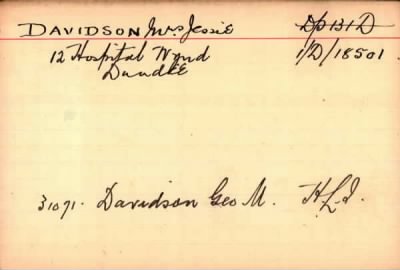 DAVIDSON Mrs Jessie D/P 131 D
12 Hospital Wynd 1/D/18501
Dundee
31071. Davidson Geo M. H.L.I.